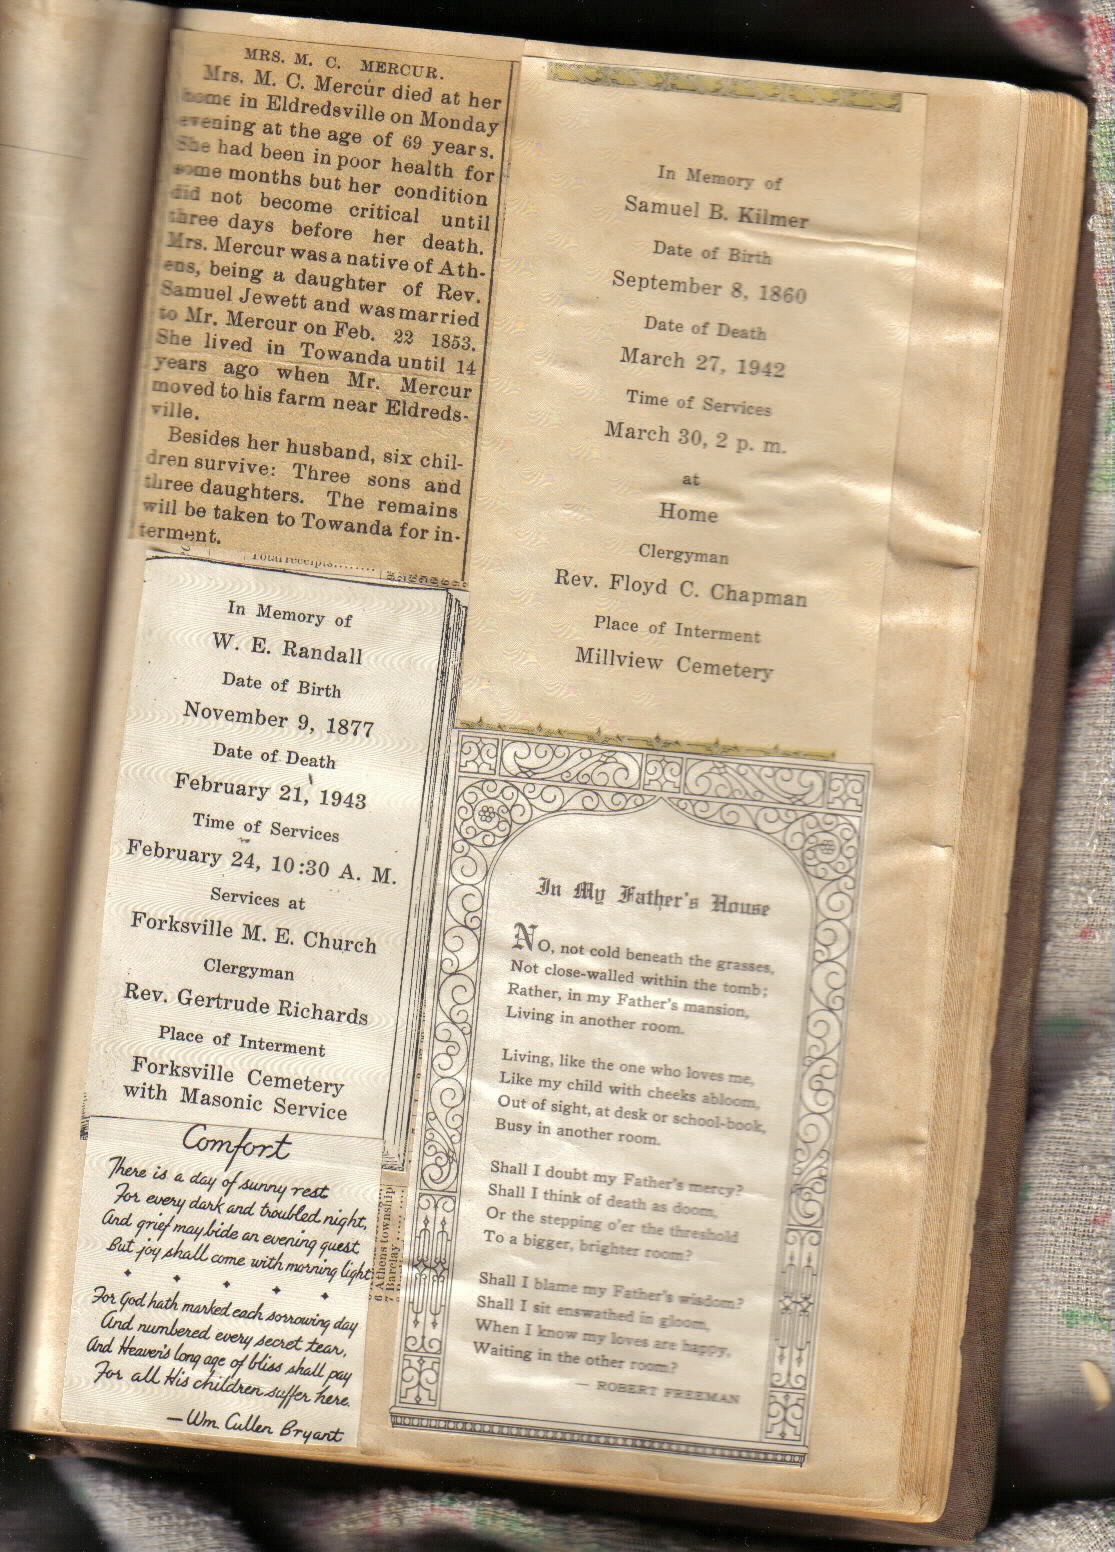 MRS. M. C. MERCUR.
Mrs. M. C. Mercur died at her
home in Eldredsville on Monday
evening at the age of 69 years.
She had been in poor health for
some months but her condition
did not become critical until
three days before her death.
Mrs. Mercur was a native of Ath-
ens, being a daughter of Rev.
Samuel Jewett and was married
to Mr. Mercur on Feb. 22 1853.
She lived in Towanda until 14
years ago when Mr. Mercur
moved to his farm near Eldreds-
ville.
Besides her husband, six chil-
dren survive: Three sons and
three daughters. The remains
will be taken to Towanda for in-
terment.
Total receipts........
In Memory of
W. E. Randall
Date of Birth
November 9, 1877
Date of Death
February 21, 1943
Time of Services
February 24, 10:30 A. M.
Services at
Forksville M. E. Church
Clergyman
Rev. Gertrude Richards
Place of Interment
Forksville Cemetery
with Masonic Service
Comfort
There is a day of sunny rest
For every dark and troubled night,
And grief may bide an evening guest,
But joy shall come with morning light
For God hath marked each sorrowing day
And numbered every secret tear,
And Heaven's long age of bliss shall pay
For all His children suffer here.
—Wm. Cullen Bryant
6 Athens township
7 Barclay . . . .
In Memory of
Samuel B. Kilmer
Date of Birth
September 8, 1860
Date of Death
March 27, 1942
Time of Services
March 30, 2 p. m.
at
Home
Clergyman
Rev. Floyd C. Chapman
Place of Interment
Millview Cemetery
In My Father's House
No, not cold beneath the grasses,
Not close-walled within the tomb;
Rather, in my Father's mansion,
Living in another room.
Living, like the one who loves me,
Like my child with cheeks abloom,
Out of sight, at desk or school-book,
Busy in another room.
Shall I doubt my Father's mercy?
Shall I think of death as doom,
Or the stepping o'er the threshold
To a bigger, brighter room?
Shall I blame my Father's wisdom?
Shall I sit enswathed in gloom,
When I know my loves are happy,
Waiting in the other room?
— ROBERT FREEMAN